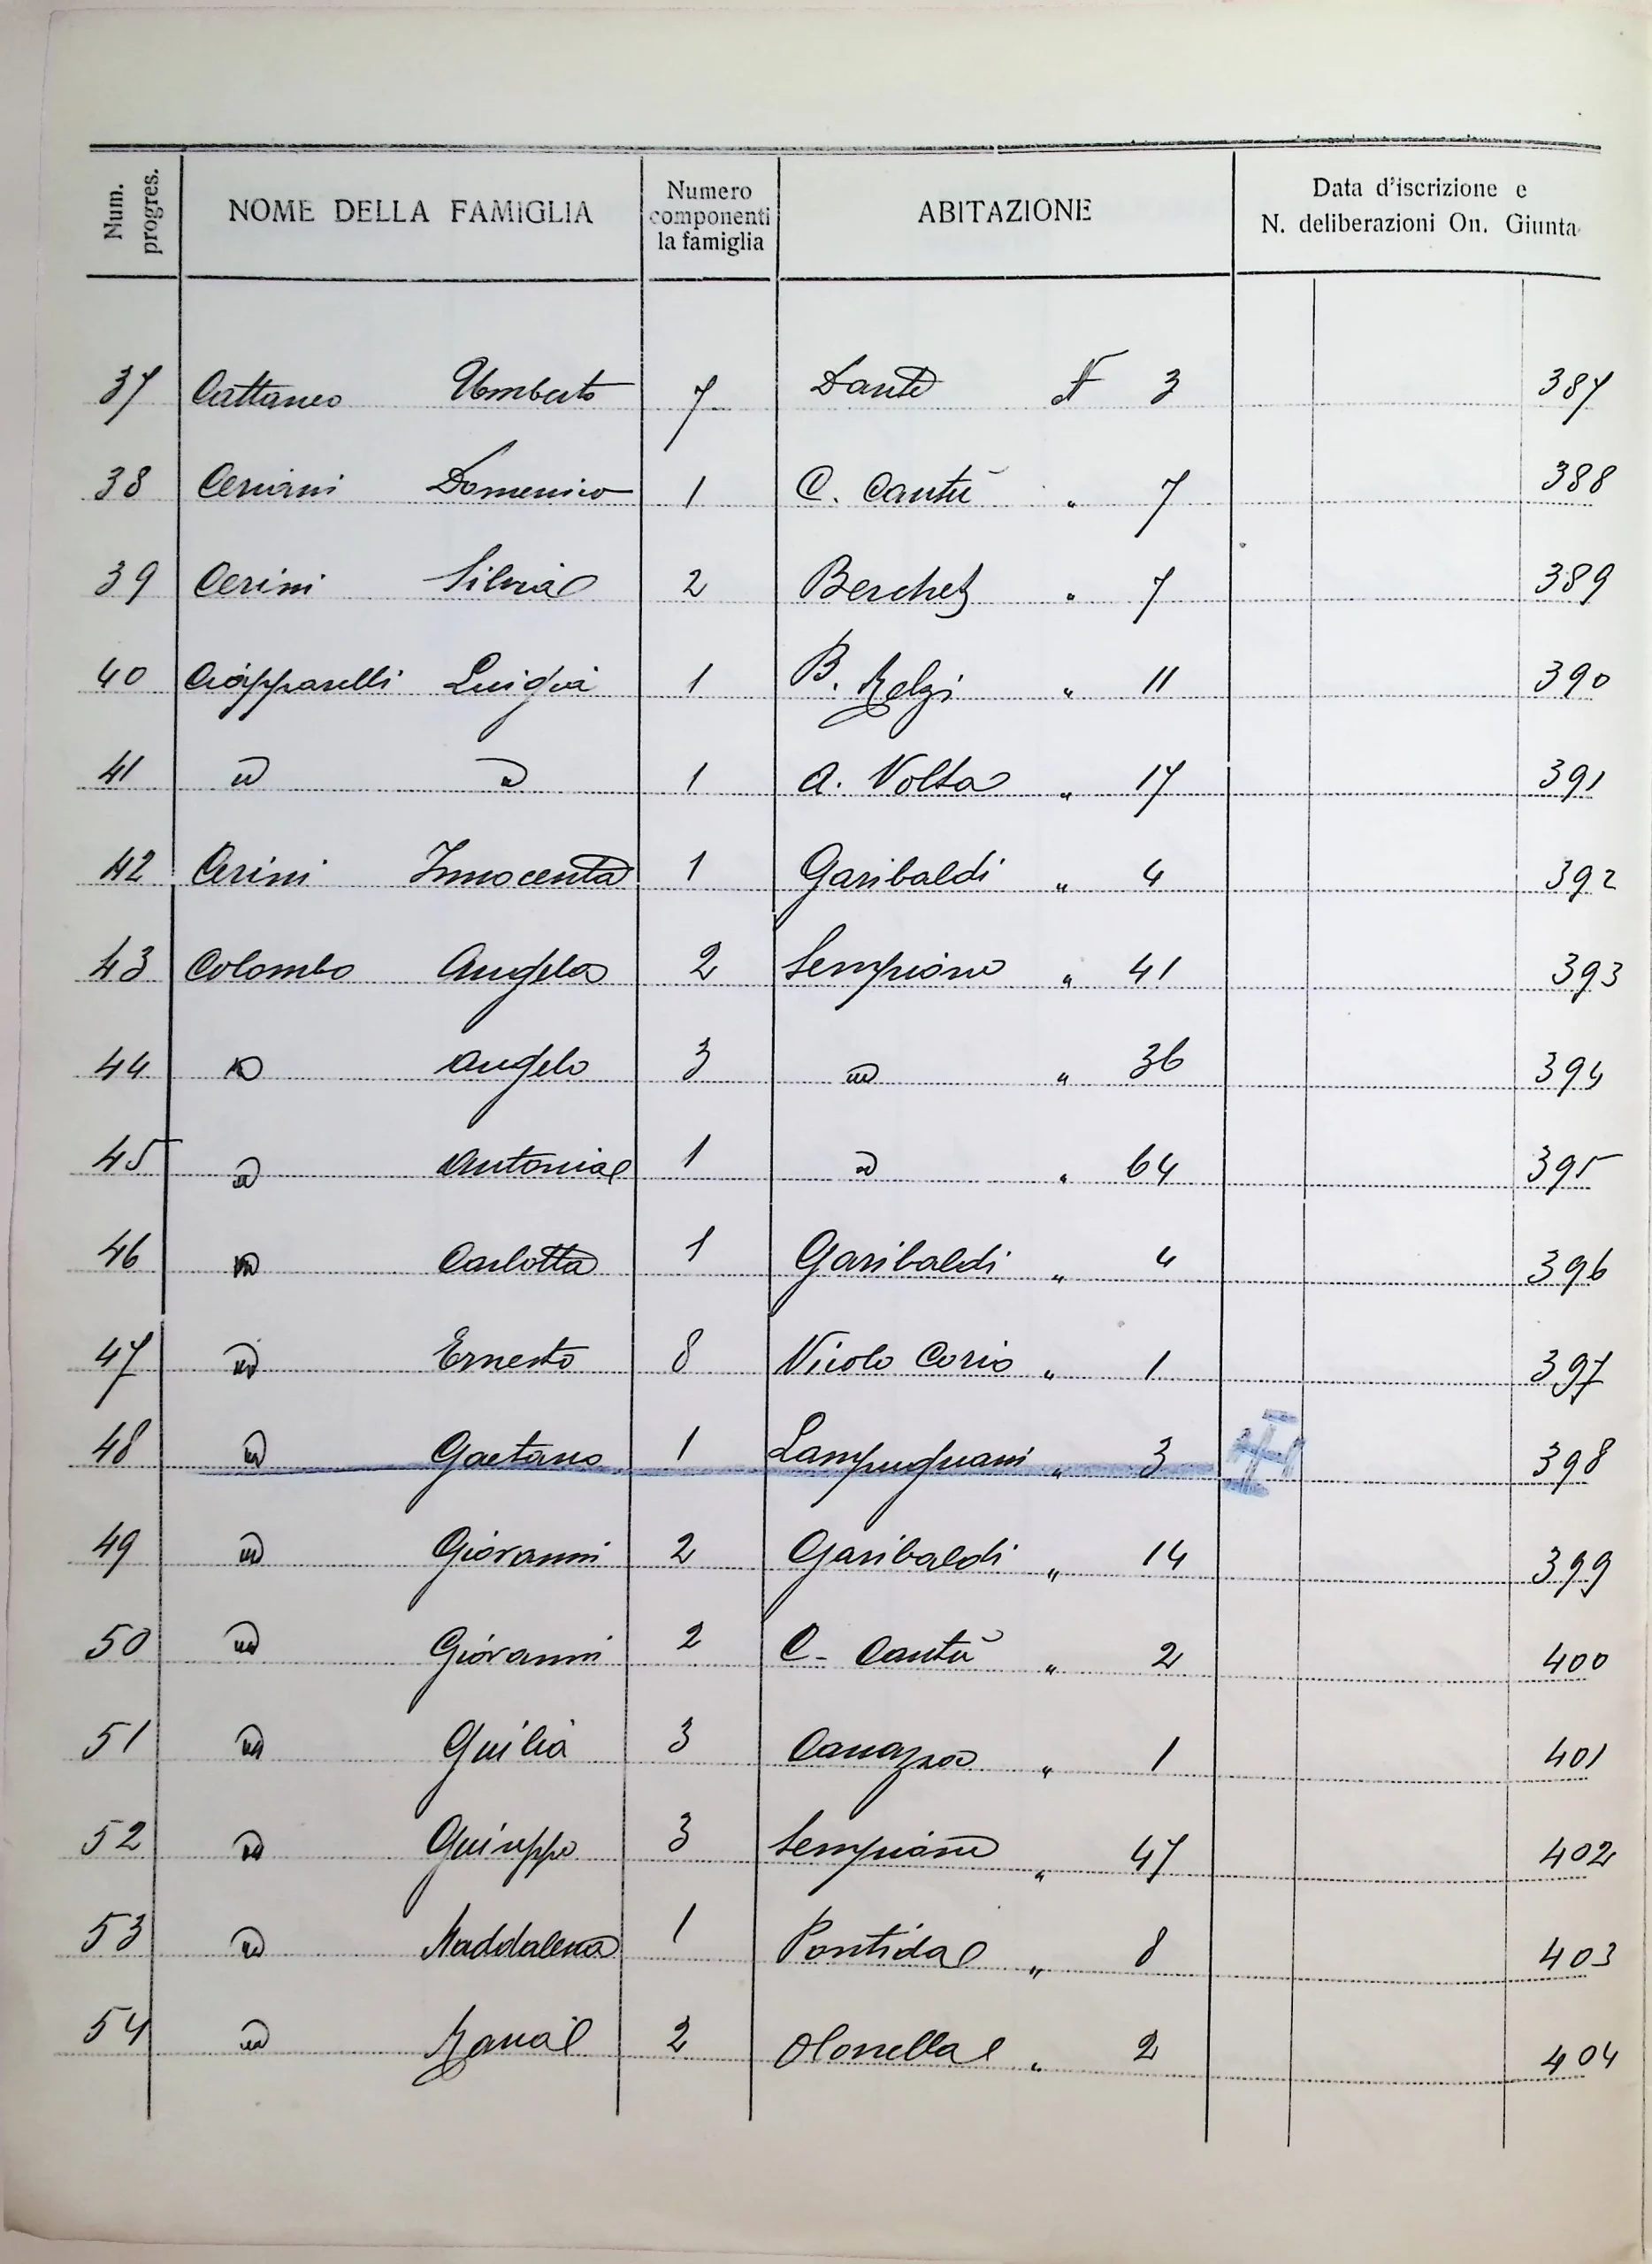 Num. progres. NOME DELLA FAMIGLIA Numero componenti la famiglia ABITAZIONE Data d'iscrizione e N. deliberazioni On. Giunta
37 Cattaneo Umberto 7 Dante N 3 387
38 Ceriani Domenico 1 C. Cantù " 7 388
39 Cerini Silvia 2 Berchet " 7 389
40 Ciapparelli Luigia 1 B. Melzi " 11 390
41 " " 1 A. Volta " 17 391
42 Cerini Innocenta 1 Garibaldi " 4 392
43 Colombo Angela 2 Sempione " 41 393
44 " Angelo 3 " " 36 394
45 " Antonia 1 " " 64 395
46 " Carlotta 1 Garibaldi " 4 396
47 " Ernesto 8 Nicolo Corio " 1 397
48 " Gaetano 1 Lampugnani " 3 398
49 " Giovanni 2 Garibaldi " 14 399
50 " Giovanni 2 C. Cantù " 2 400
51 " Giulia 3 Canazza " 1 401
52 " Giuseppe 3 Sempione " 47 402
53 " Maddalena 1 Pontida " 8 403
54 " Maria 2 Olonella " 2 404